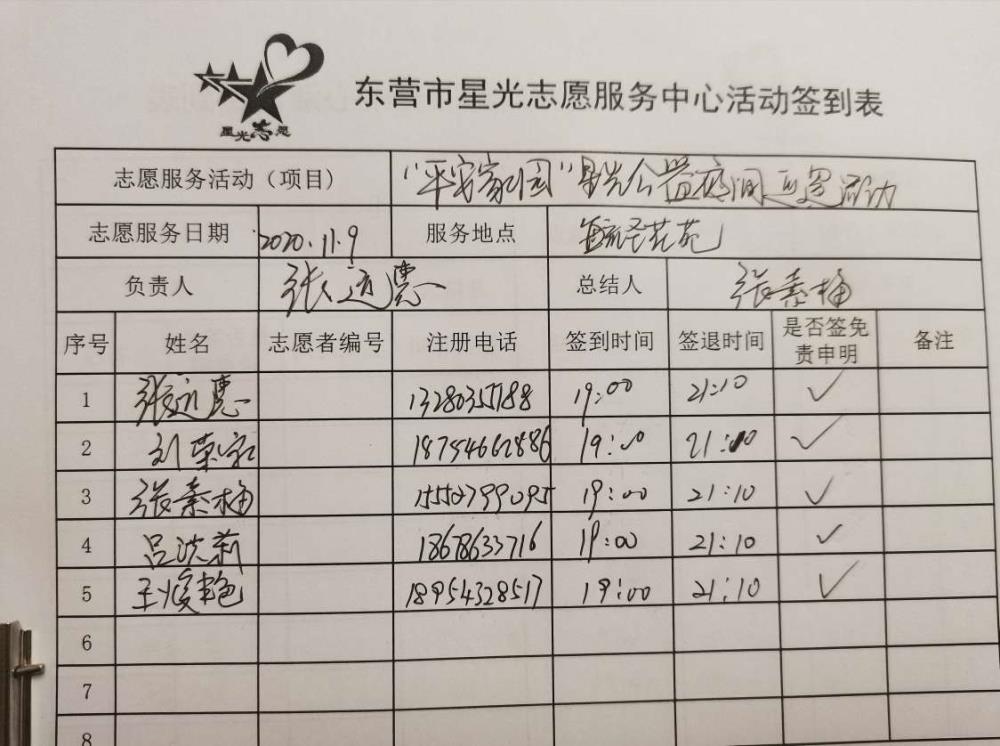 星光志愿
东营市星光志愿服务中心活动签到表
志愿服务活动（项目） “平安家园”星光公益夜间巡逻活动
志愿服务日期 2020.11.9 服务地点 苑
负责人 张远惠 总结人 张素梅
序号 姓名 志愿者编号 注册电话 签到时间 签退时间 是否签免责申明 备注
1 张远惠 13280355188 19:00 21:10 ✓
2 刘荣家 18754662886 19:00 21:10 ✓
3 张素梅 15552799095 19:00 21:10 ✓
4 吕洪莉 18678633716 19:00 21:10 ✓
5 王艳 18954328517 19:00 21:10 ✓
6
7
8